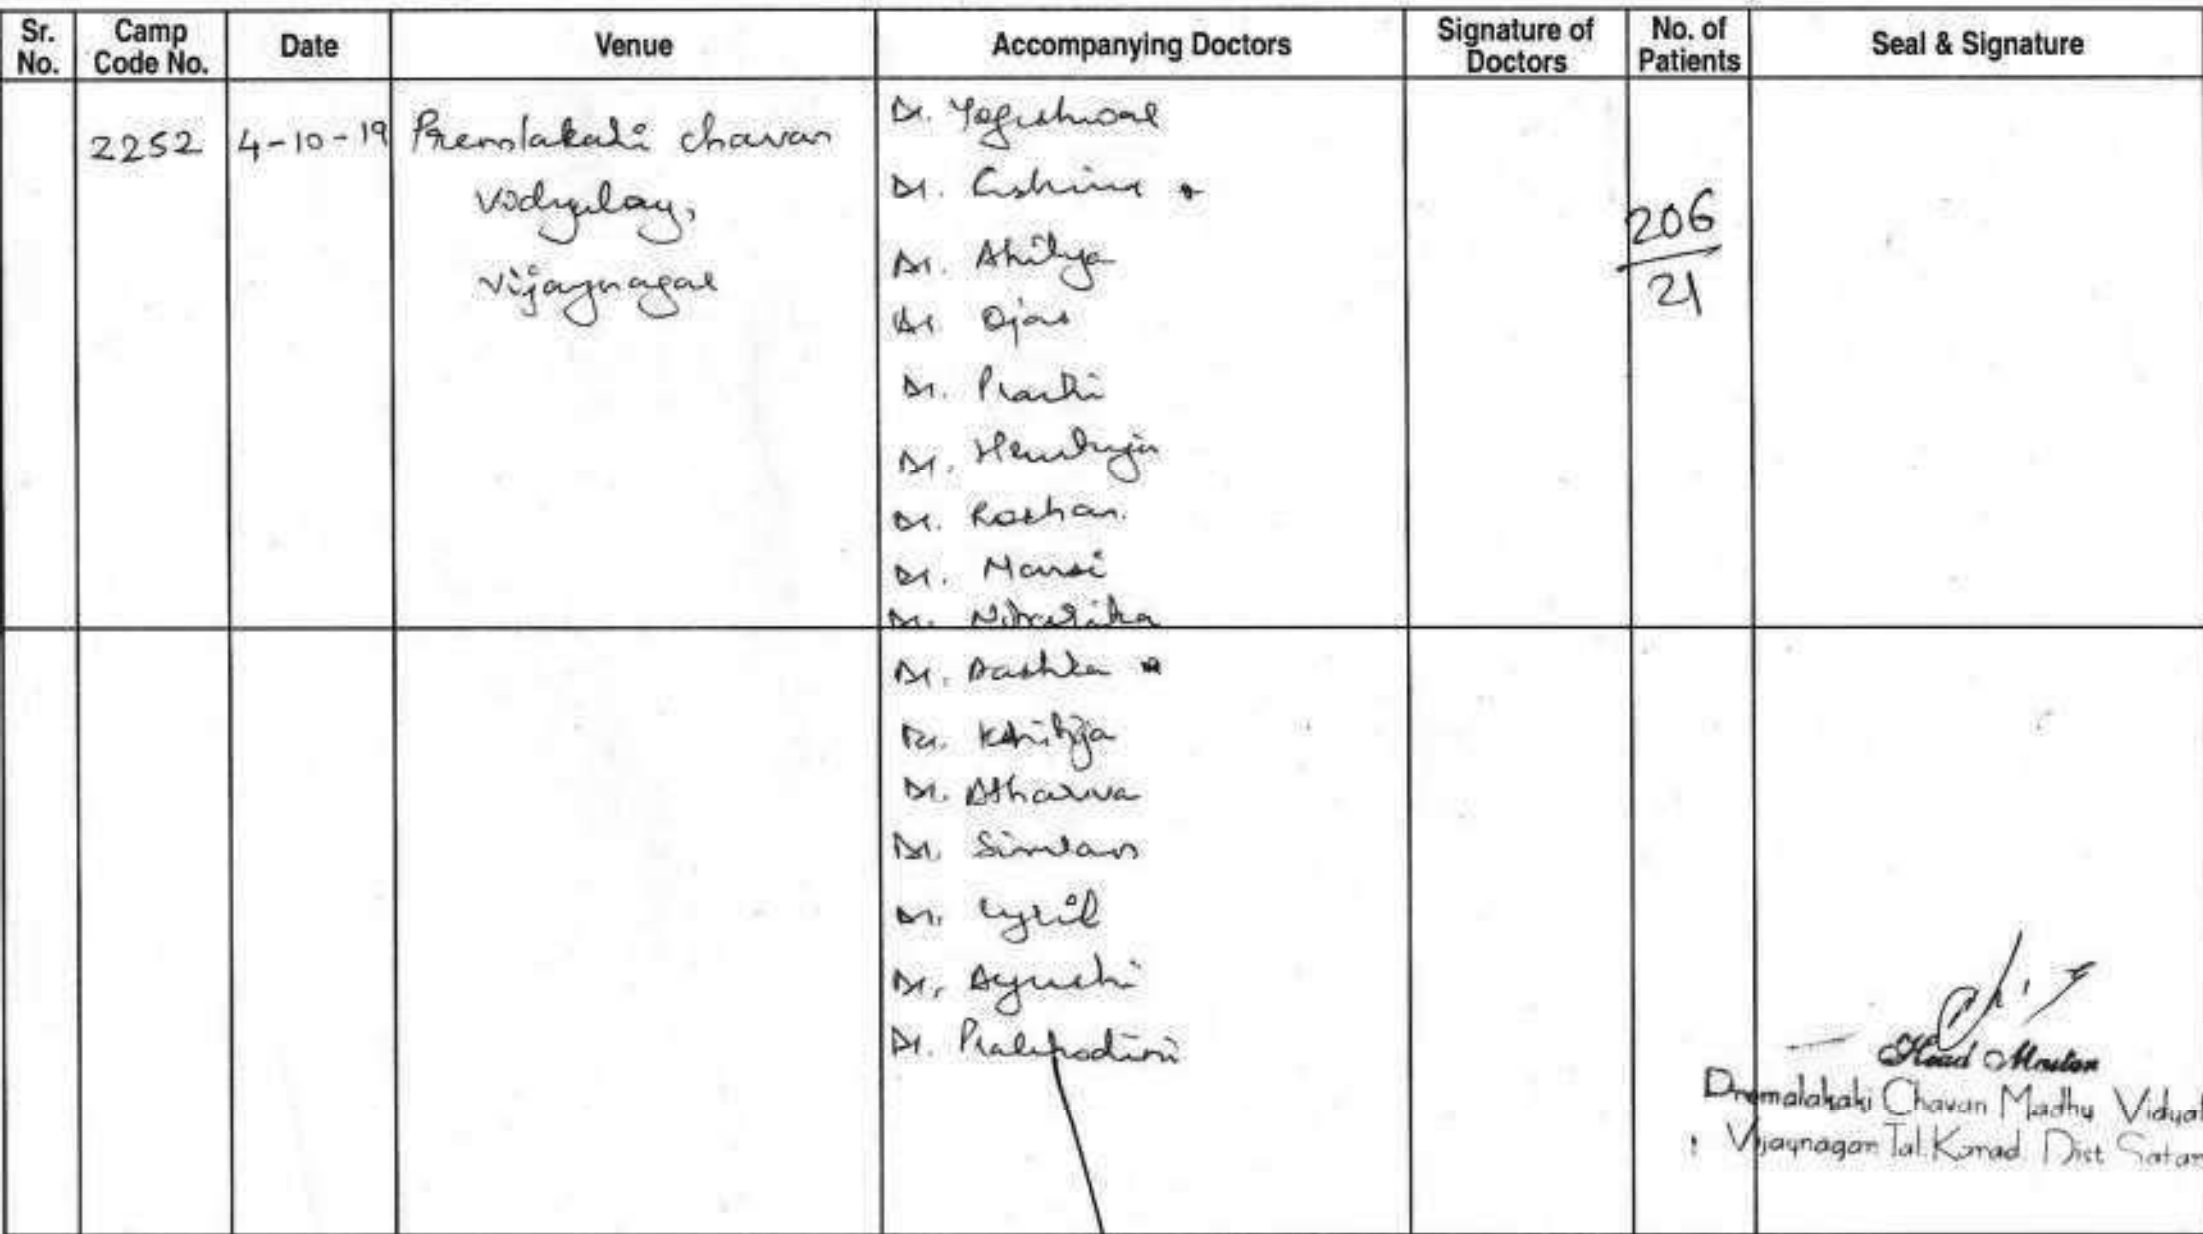 Sr. No. Camp Code No. Date Venue Accompanying Doctors Signature of Doctors No. of Patients Seal & Signature
2252 4-10-19 Premlakaki chavan
Vidyalay,
Vijaynagar
206
21
Dr. Yogeshwar
Dr. Ashina
Dr.
Dr. Ojas
Dr. Prachi
Dr.
Dr. Roshan.
Dr. Mansi
Dr. Niharika
Dr. Aashka
Dr. Kshitija
Dr. Atharva
Dr. Simran
Dr. Cyril
Dr. Ayushi
Dr.
Head Master
Premalakaki Chavan Madhy Vidyal
Vijaynagar Tal. Karad. Dist Satar